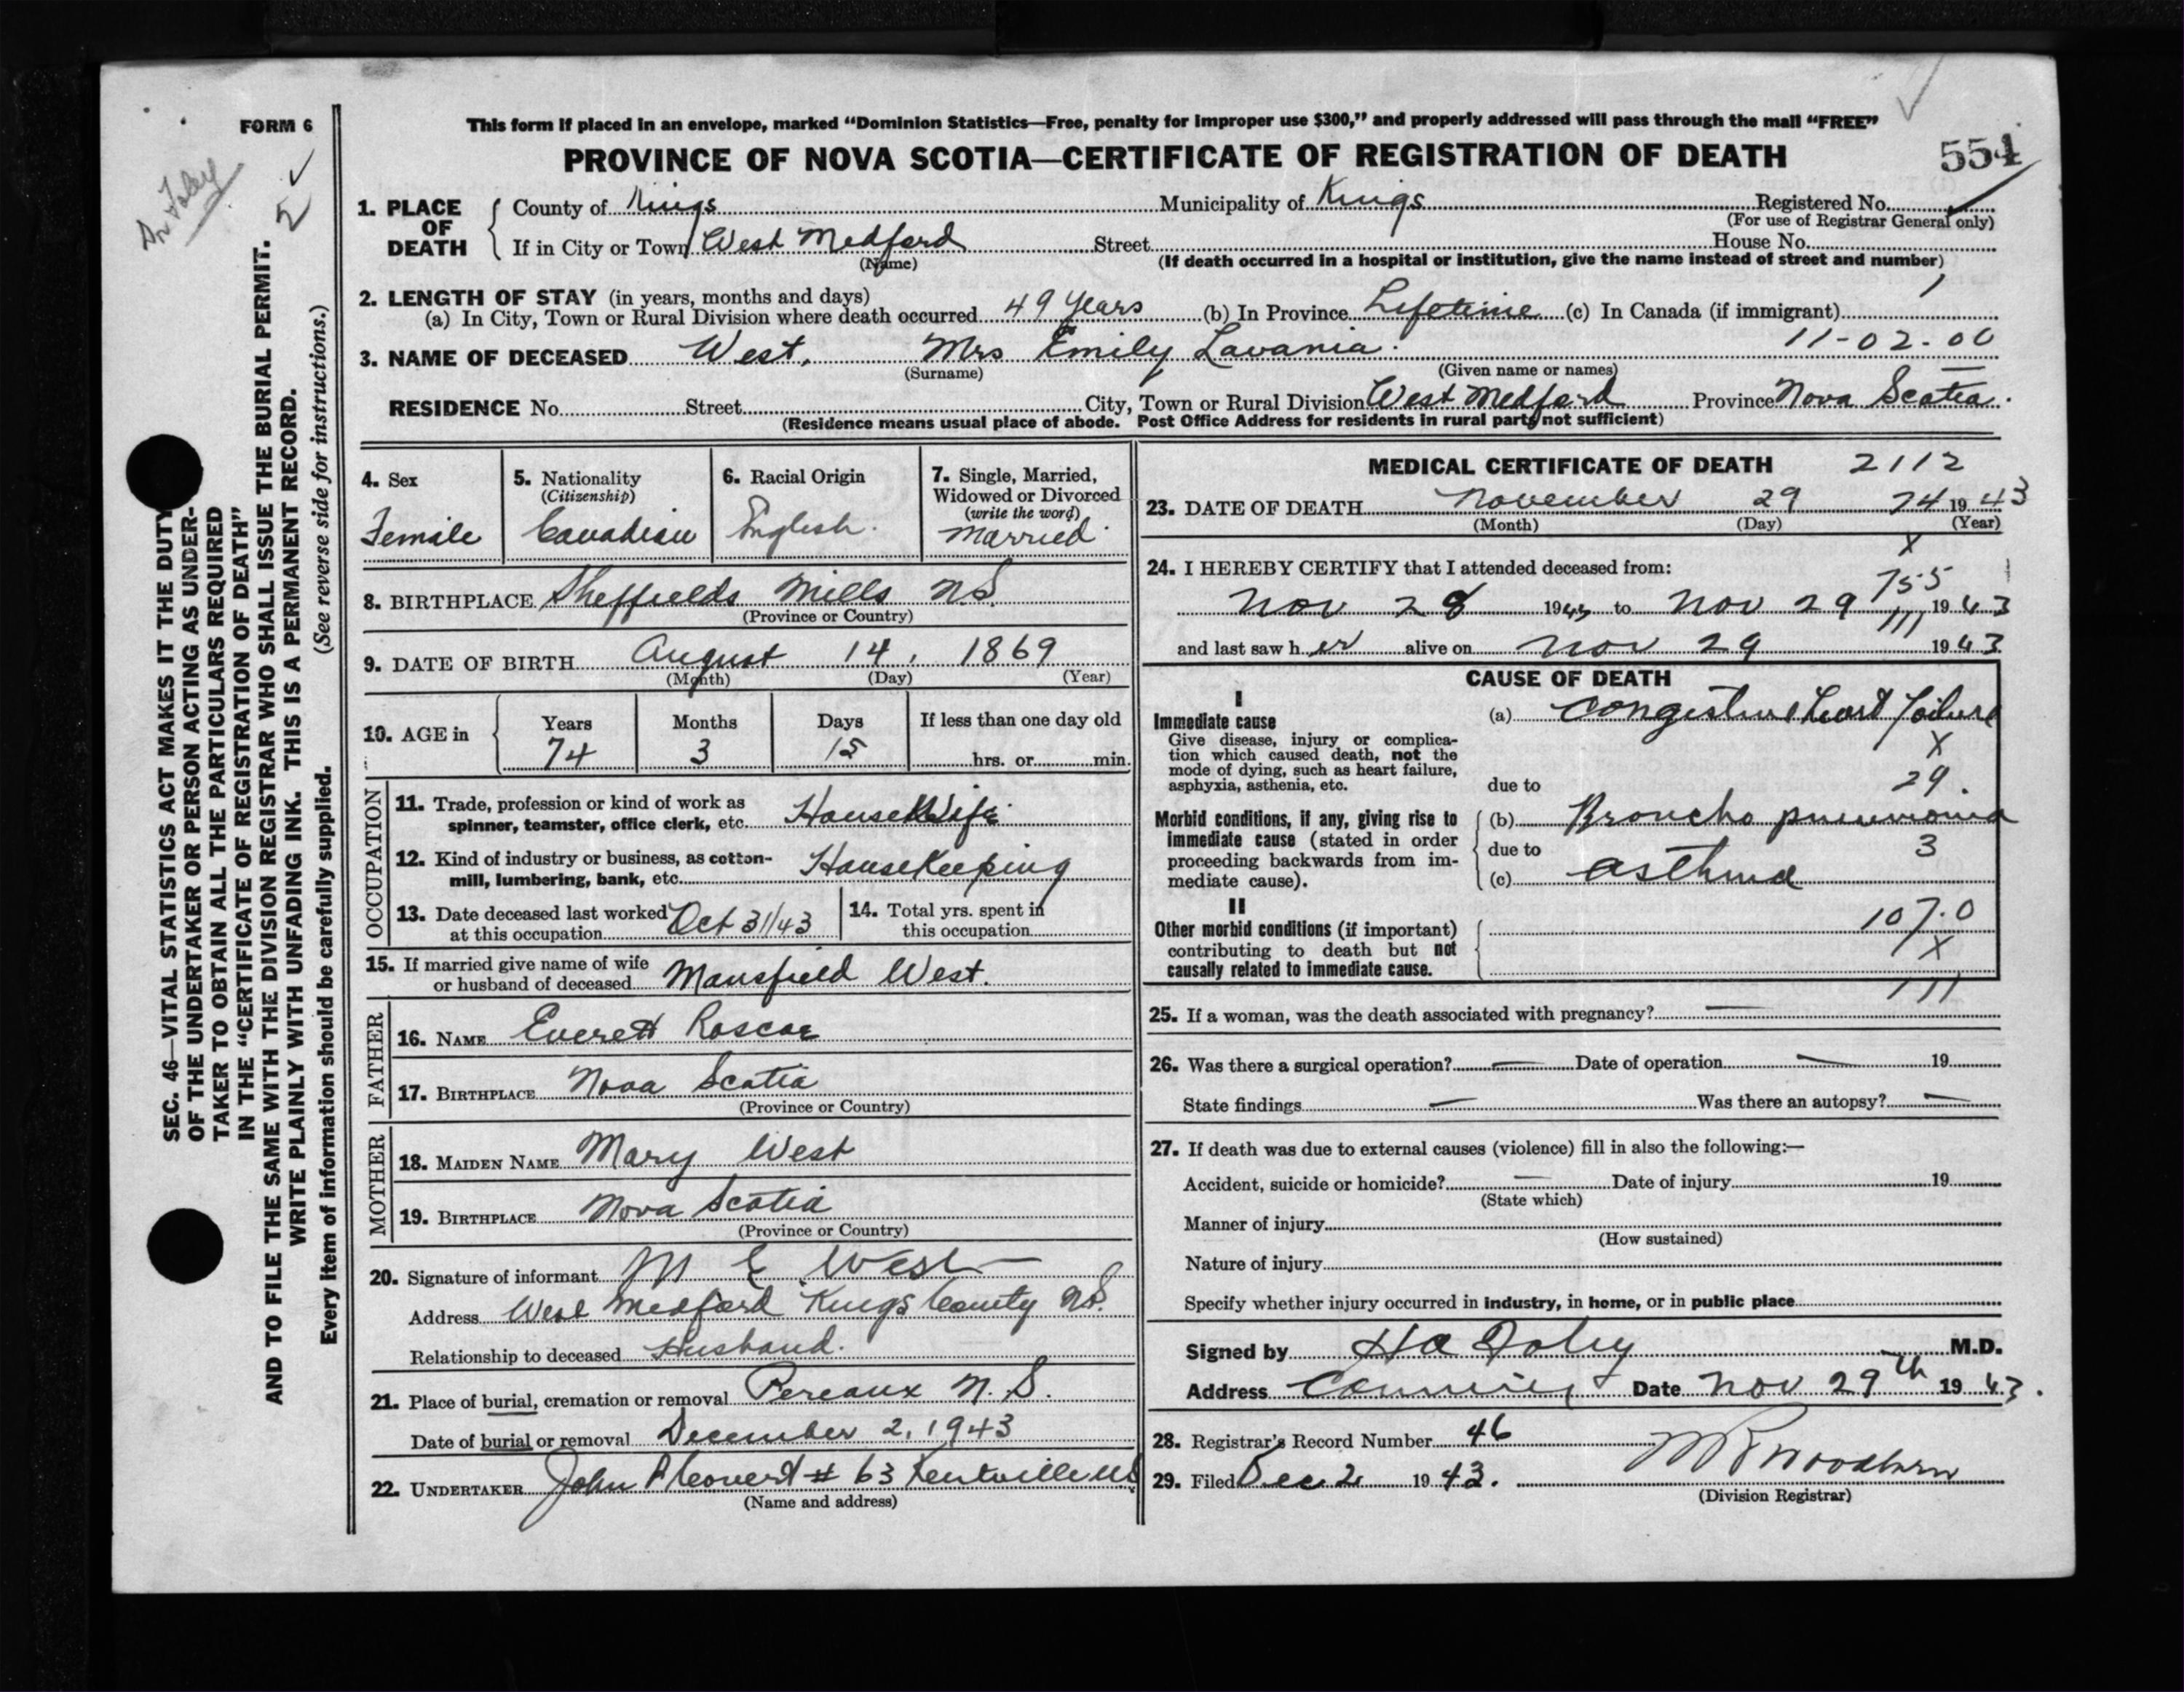 FORM 6
Dr Foley
5
This form if placed in an envelope, marked “Dominion Statistics—Free, penalty for improper use $300,” and properly addressed will pass through the mail “FREE”
PROVINCE OF NOVA SCOTIA—CERTIFICATE OF REGISTRATION OF DEATH
554
1. PLACE OF DEATH
County of Kings Municipality of Kings Registered No.
(For use of Registrar General only)
If in City or Town West Medford Street House No.
(Name) (If death occurred in a hospital or institution, give the name instead of street and number)
2. LENGTH OF STAY (in years, months and days)
(a) In City, Town or Rural Division where death occurred 49 years (b) In Province Lifetime (c) In Canada (if immigrant)
3. NAME OF DECEASED West, Mrs Emily Lavania. 11-02-00
(Surname) (Given name or names)
RESIDENCE No. Street City, Town or Rural Division West Medford Province Nova Scotia.
(Residence means usual place of abode. Post Office Address for residents in rural parts not sufficient)
SEC. 46—VITAL STATISTICS ACT MAKES IT THE DUTY
OF THE UNDERTAKER OR PERSON ACTING AS UNDER-
TAKER TO OBTAIN ALL THE PARTICULARS REQUIRED
IN THE “CERTIFICATE OF REGISTRATION OF DEATH”
AND TO FILE THE SAME WITH THE DIVISION REGISTRAR WHO SHALL ISSUE THE BURIAL PERMIT.
WRITE PLAINLY WITH UNFADING INK. THIS IS A PERMANENT RECORD.
Every item of information should be carefully supplied. (See reverse side for instructions.)
4. Sex
Female
5. Nationality
(Citizenship)
Canadian
6. Racial Origin
English.
7. Single, Married,
Widowed or Divorced
(write the word)
Married.
8. BIRTHPLACE Sheffields Mills N.S.
(Province or Country)
9. DATE OF BIRTH August 14, 1869
(Month) (Day) (Year)
10. AGE in
Years Months Days If less than one day old
74 3 15 hrs. or min.
OCCUPATION
11. Trade, profession or kind of work as
spinner, teamster, office clerk, etc. HouseWife
12. Kind of industry or business, as cotton-
mill, lumbering, bank, etc. HouseKeeping
13. Date deceased last worked
at this occupation Oct 31/43
14. Total yrs. spent in
this occupation
15. If married give name of wife
or husband of deceased Mansfield West.
FATHER
16. NAME Everett Roscoe
17. BIRTHPLACE Nova Scotia
(Province or Country)
MOTHER
18. MAIDEN NAME Mary West
19. BIRTHPLACE Nova Scotia
(Province or Country)
20. Signature of informant M E West
Address West Medford Kings County N.S.
Relationship to deceased Husband.
21. Place of burial, cremation or removal Pereaux N.S.
Date of burial or removal December 2, 1943
22. UNDERTAKER John # 63 Kentville N.S.
(Name and address)
MEDICAL CERTIFICATE OF DEATH 2112
23. DATE OF DEATH November 29 74 1943
(Month) (Day) (Year)
X
24. I HEREBY CERTIFY that I attended deceased from:
755
Nov 28 1943 to Nov 29 1943
111
and last saw her alive on Nov 29 1943
CAUSE OF DEATH
I
Immediate cause
Give disease, injury or complica-
tion which caused death, not the
mode of dying, such as heart failure,
asphyxia, asthenia, etc.
(a) Congestive heart failure
X
29.
due to
Morbid conditions, if any, giving rise to
immediate cause (stated in order
proceeding backwards from im-
mediate cause).
(b) Broncho pneumonia
due to 3
(c) asthma
II
Other morbid conditions (if important)
contributing to death but not
causally related to immediate cause.
107.0
X
111
25. If a woman, was the death associated with pregnancy? —
26. Was there a surgical operation? — Date of operation — 19
State findings — Was there an autopsy? —
27. If death was due to external causes (violence) fill in also the following:—
Accident, suicide or homicide? — Date of injury 19
(State which)
Manner of injury
(How sustained)
Nature of injury
Specify whether injury occurred in industry, in home, or in public place
Signed by Foley M.D.
Address Canning Date Nov 29th 1943.
28. Registrar's Record Number 46
29. Filed Dec 2 1943.
(Division Registrar)